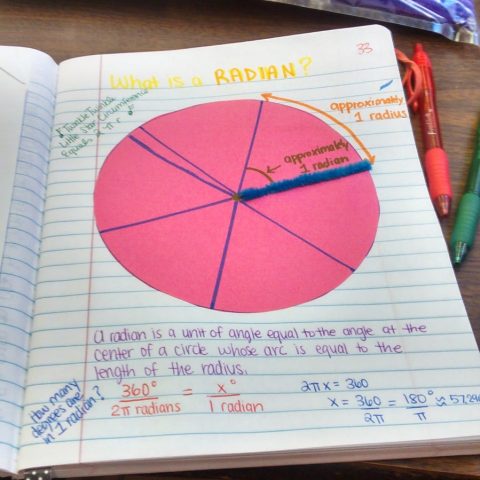 33
What is a RADIAN?
Twinkle Twinkle
Little Star Circumference
Equals 2πr
approximately
1 radius
approximately
1 radian
A radian is a unit of angle equal to the angle at the
center of a circle whose arc is equal to the
length of the radius.
How many
degrees are
in 1 radian?
360° = x°
2π radians 1 radian
2πx = 360
x = 360 = 180° ≈ 57.296
2π π